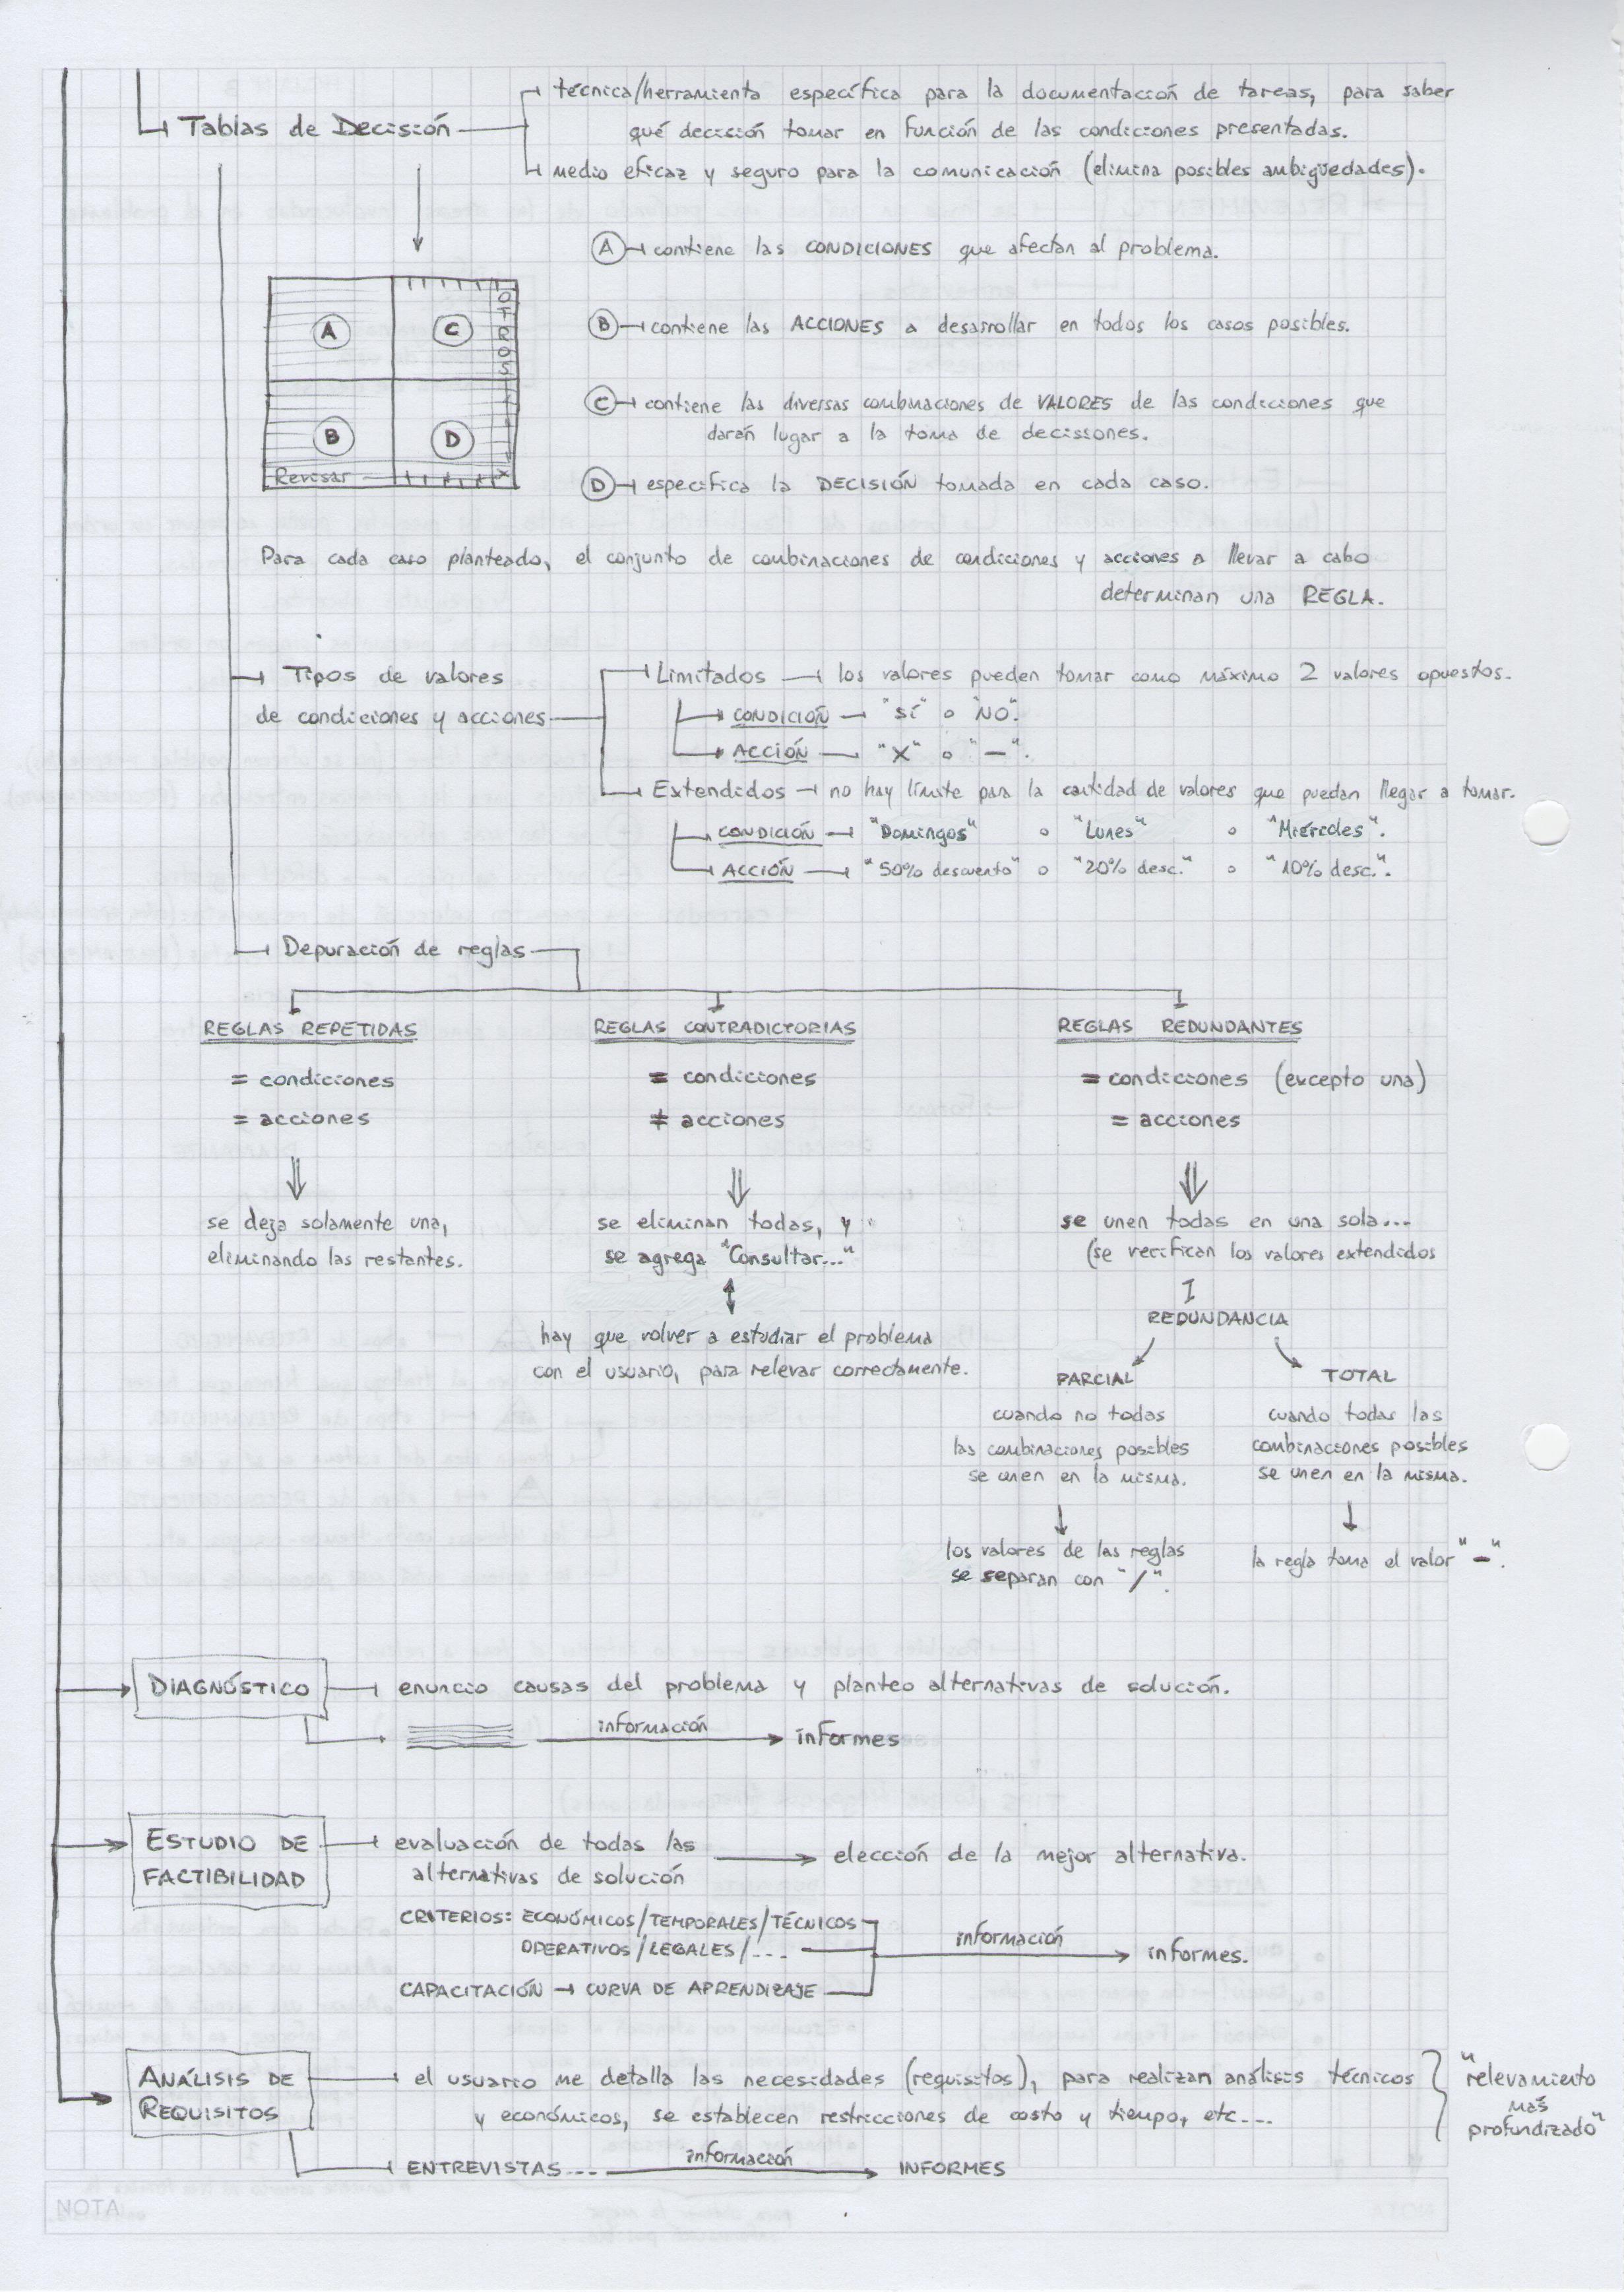 Tablas de Decisión
técnica/herramienta específica para la documentación de tareas, para saber
qué decisión tomar en función de las condiciones presentadas.
medio eficaz y seguro para la comunicación (elimina posibles ambigüedades).
A C OTROS
B D
Revisar X
A contiene las CONDICIONES que afectan al problema.
B contiene las ACCIONES a desarrollar en todos los casos posibles.
C contiene las diversas combinaciones de VALORES de las condiciones que
darán lugar a la toma de decisiones.
D especifica la DECISIÓN tomada en cada caso.
Para cada caso planteado, el conjunto de combinaciones de condiciones y acciones a llevar a cabo
determinan una REGLA.
Tipos de valores
de condiciones y acciones
Limitados los valores pueden tomar como máximo 2 valores opuestos.
CONDICIÓN "SÍ" o "NO".
ACCIÓN "X" o "—".
Extendidos no hay límite para la cantidad de valores que puedan llegar a tomar.
CONDICIÓN "Domingos" o "Lunes" o "Miércoles".
ACCIÓN "50% descuento" o "20% desc." o "10% desc.".
Depuración de reglas
REGLAS REPETIDAS
= condiciones
= acciones
⇓
se deja solamente una,
eliminando las restantes.
REGLAS CONTRADICTORIAS
= condiciones
≠ acciones
⇓
se eliminan todas, y
se agrega "Consultar..."
↕
hay que volver a estudiar el problema
con el usuario, para relevar correctamente.
REGLAS REDUNDANTES
= condiciones (excepto una)
= acciones
⇓
se unen todas en una sola...
(se verifican los valores extendidos
REDUNDANCIA
PARCIAL
cuando no todas
las combinaciones posibles
se unen en la misma.
↓
los valores de las reglas
se separan con "/".
TOTAL
cuando todas las
combinaciones posibles
se unen en la misma.
↓
la regla toma el valor "—".
DIAGNÓSTICO enuncio causas del problema y planteo alternativas de solución.
información informes
ESTUDIO DE
FACTIBILIDAD
evaluación de todas las
alternativas de solución
elección de la mejor alternativa.
CRITERIOS: ECONÓMICOS/TEMPORALES/TÉCNICOS
OPERATIVOS/LEGALES/...
CAPACITACIÓN → CURVA DE APRENDIZAJE
información informes.
ANÁLISIS DE
REQUISITOS
el usuario me detalla las necesidades (requisitos), para realizan análisis técnicos
y económicos, se establecen restricciones de costo y tiempo, etc...
"relevamiento
más
profundizado"
ENTREVISTAS... información INFORMES